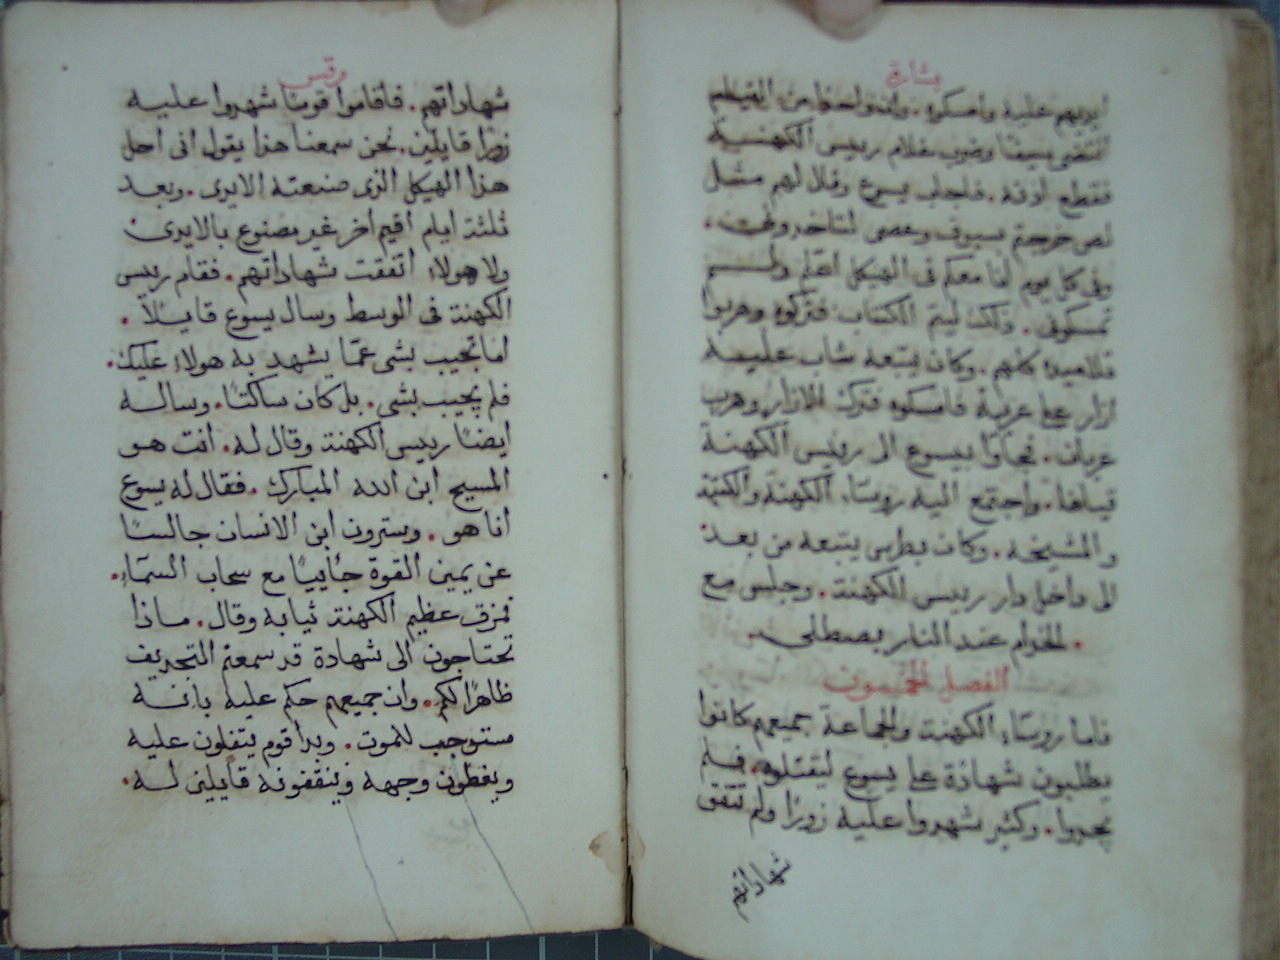 بشارة
ايديهم عليه وامسكوه. وان واحدًا من القيام
انتضى سيفًا وضرب غلام رييس الكهنة
فقطع اذنه. فاجاب يسوع وقال لهم مثل
لص خرجتم بسيوف وعصى لتاخدونى.
وفى كل يوم انا معكم فى الهيكل اعلم ولم
تمسكونى. ذلك ليتم الكتاب فتركوه وهربوا
تلاميده كلهم. وكان يتبعه شاب عليه
ازار على عرية فامسكوه فترك الازار وهرب
عريان. فجاوا بيسوع الى رييس الكهنة
قيافا. واجتمع اليه روسا الكهنة والكتبة
والمشيخة. وكان بطرس يتبعه من بعد
الى داخل دار رييس الكهنة. وجلس مع
الخدام عند النار يصطلى.
الفصل الخمسون
فاما روساء الكهنة والجماعة جميعهم كانوا
يطلبون شهادة على يسوع ليقتلوه. فلم
يجدوا. وكثير شهدوا عليه زورًا ولم تتفق
شهاداتهم
مرقس
شهاداتهم. فاقاموا قومًا شهدوا عليه
زورًا قايلين. نحن سمعنا هذا يقول انى احل
هذا الهيكل الذى صنعته الايدى. وبعد
ثلثة ايام اقيم اخر غير مصنوع بالايدى
ولا هولاء اتفقت شهاداتهم. فقام رييس
الكهنة فى الوسط وسال يسوع قايلًا.
اما تجيب بشى عمّا يشهد به هولاء عليك.
فلم يجيب بشى. بل كان ساكتًا. وساله
ايضًا رييس الكهنة وقال له. انت هو
المسيح ابن الله المبارك. فقال له يسوع
انا هو. وسترون ابن الانسان جالسًا
عن يمين القوة جاييًا مع سحاب السمآء.
فمزق عظيم الكهنة ثيابه وقال. ماذا
تحتاجون الى شهادة قد سمعتم التجديف
ظاهرًا لكم. وان جميعهم حكم عليه بانه
مستوجب للموت. وبدا قوم يتفلون عليه
ويغطون وجهه وينقفونه قايلين له.